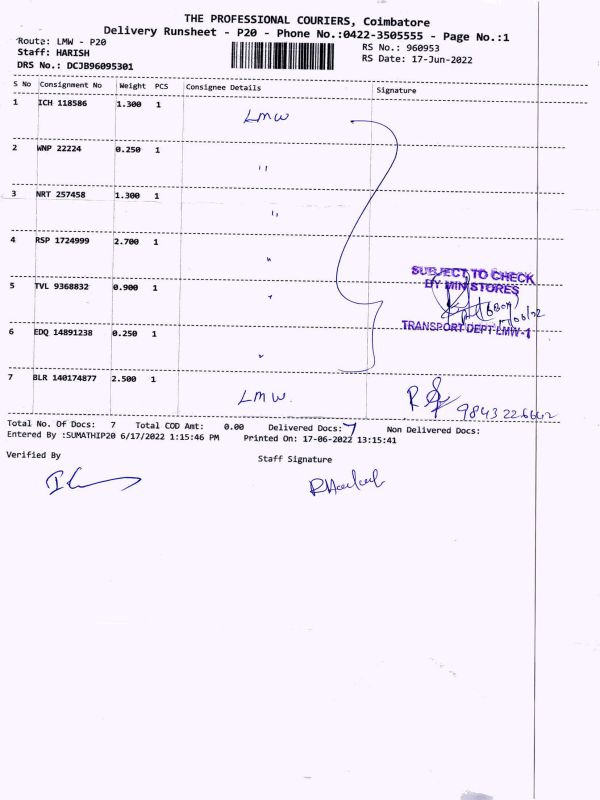 THE PROFESSIONAL COURIERS, Coimbatore
Delivery Runsheet - P20 - Phone No.:0422-3505555 - Page No.:1
Route: LMW - P20
Staff: HARISH
DRS No.: DCJB96095301
RS No.: 960953
RS Date: 17-Jun-2022
S No Consignment No Weight PCS Consignee Details Signature
1 ICH 118586 1.300 1 LMW
2 WNP 22224 0.250 1 "
3 NRT 257458 1.300 1 "
4 RSP 1724999 2.700 1 "
SUBJECT TO CHECK
BY MIN STORES
5 TVL 9368832 0.900 1 "
17/06/22
TRANSPORT DEPT-LMW-1
6 EDQ 14891238 0.250 1 "
7 BLR 140174877 2.500 1 LMW.
9843226642
Total No. Of Docs: 7 Total COD Amt: 0.00 Delivered Docs: 7 Non Delivered Docs:
Entered By :SUMATHIP20 6/17/2022 1:15:46 PM Printed On: 17-06-2022 13:15:41
Verified By Staff Signature